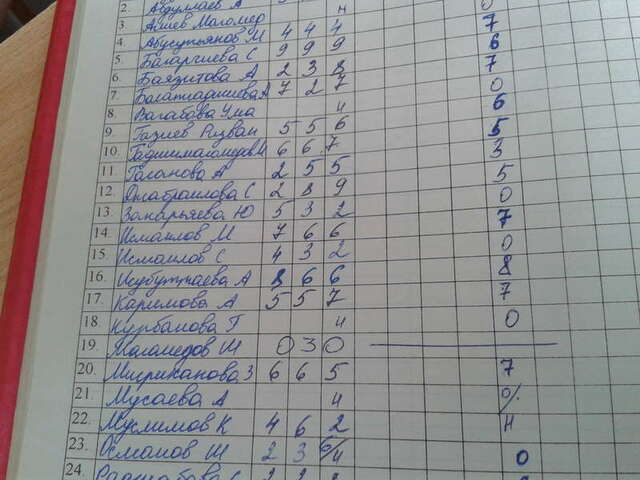 2. Абдуллаев А н 0
3. Агиев Магомед 4 4 4 7
4. Абдусупьянов М 9 9 9 6
5. С 2 3 8 7
6. Баязитова А 7 2 7 0
7. н 6
8. Вагабова Ума 5
9. Газиев Ризван 5 5 6 3
10. Гаджимагомедов М 6 6 7
11. Гаганова А 2 5 5 5
12. Джабраилова С 2 8 9 0
13. Закарьяева Ю 5 3 2 7
14. Исмаилов М 7 6 6 0
15. Исмаилов С 4 3 2 8
16. А 8 6 6 7
17. Каримова А 5 5 7
18. Курбанова Г н 0
19. Магомедов Ш 0 3 0
20. З 6 6 5 7
21. Мусаева А н 0/.
22. Муслимов К 4 6 2 н
23. Османов Ш 2 3 6/н 0
24. Раджабова С